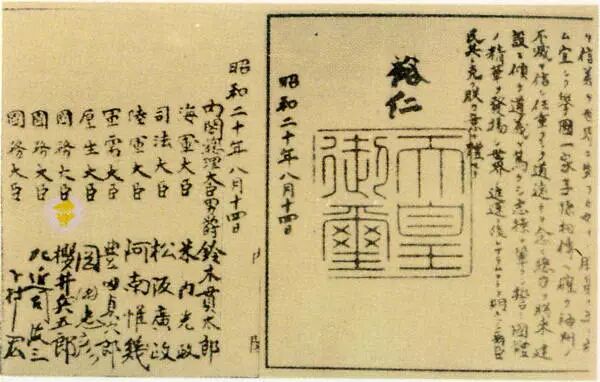 信義ヲ世界ニ失フカ如キ
ム宜シク擧國一家子孫相傳ヘ確ク神州ノ
不滅ヲ信シ任重クシテ道遠キヲ念ヒ總力ヲ將來ノ建
設ニ傾ケ道義ヲ篤クシ志操ヲ鞏クシ誓テ國體
ノ精華ヲ發揚シ世界ノ進運ニ後レサラムコトヲ期スヘシ爾臣
民其レ克ク朕カ意ヲ體セヨ
裕仁
天皇
御璽
昭和二十年八月十四日
昭和二十年八月十四日
內閣總理大臣男爵 鈴木貫太郎
海軍大臣 米內光政
司法大臣 松阪廣政
陸軍大臣 阿南惟幾
軍需大臣 豐田貞次郎
厚生大臣 岡田忠彥
國務大臣 櫻井兵五郎
國務大臣 左近司政三
國務大臣 下村宏